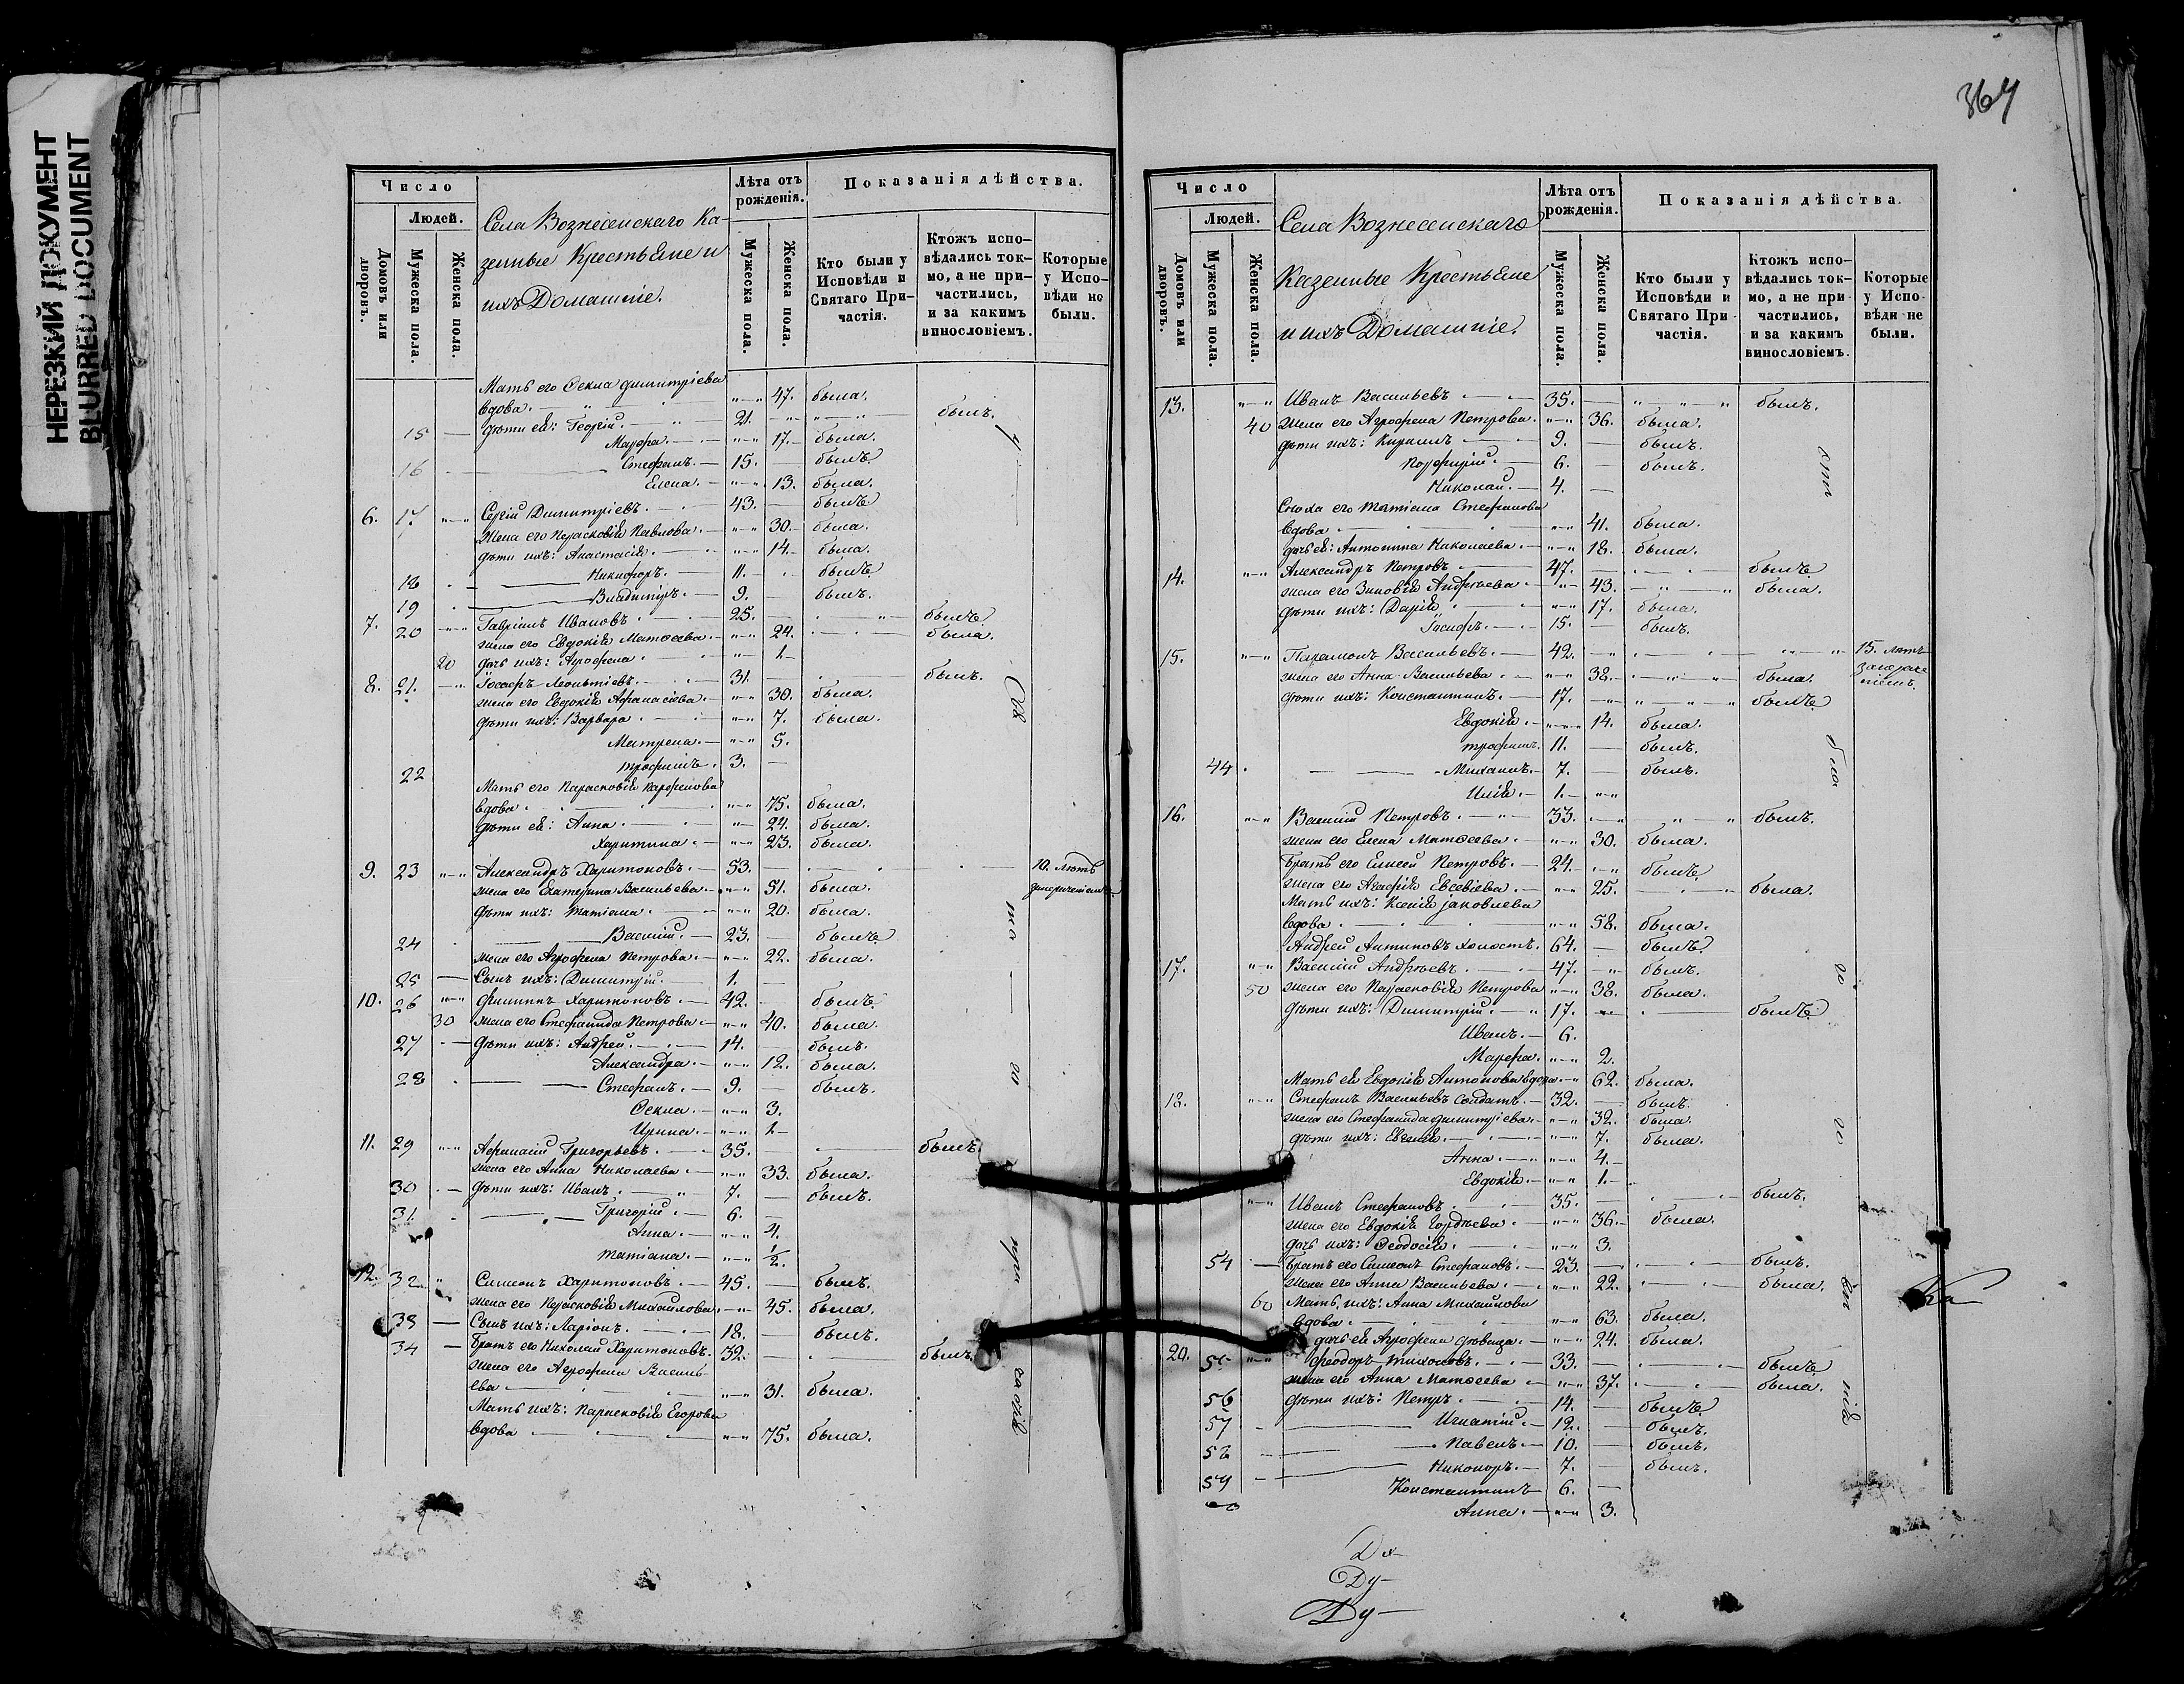 НЕРЕЗКИЙ ДОКУМЕНТ
BLURRED DOCUMENT
Число
Людей.
Домовъ или дворовъ.
Мужеска пола.
Женска пола.
Села Вознесенскаго Ка-
зенные Крестьяне и
ихъ Домашніе.
Лѣта отъ рожденія.
Мужеска пола.
Женска пола.
Показанія дѣйства.
Кто были у Исповѣди и Святаго При-частія.
Ктожъ испо-вѣдались ток-мо, а не при-частились, и за какимъ винословіемъ.
Которые у Испо-вѣди не были.
Мать его Ѳекла Димитріева
вдова. 47. была.
15 дѣти ея: Георгій. 21. былъ.
Марѳа. 17. была.
16 Стефанъ. 15. былъ
Елена. 13. была.
6. 17 Сергій Димитріевъ. 43. былъ
жена его Парасковія Павлова. 30. была.
дѣти ихъ: Анастасія. 14. была.
18 Никифоръ. 11. былъ
19 Владиміръ. 9. былъ.
7. 20 Гавріилъ Ивановъ. 25. былъ.
жена его Евдокія Матѳеева. 24. была.
20 дочь ихъ: Агрофена. 1.
8. 21. Іосифъ Леонтіевъ. 31. былъ.
жена его Евдокія Афанасіева. 30. была.
дѣти ихъ: Варвара. 7. была.
Матрена. 5.
22 трофимъ. 3.
Мать его Парасковія Парфенова
вдова. 75. была.
дѣти ея: Анна. 24. была.
Харитина. 23. была.
9. 23 Александръ Харитоновъ. 53. 10. лѣтъ
жена его Екатерина Васильева. 51. была.
дѣти ихъ: татіана. 20. была.
24 Василій. 23. былъ
жена его Агрофена Петрова. 22. была.
25 Сынъ ихъ: Димитрій. 1.
10. 26 Филиппъ Харитоновъ. 42. былъ
30 жена его Стефанида Петрова. 40. была.
27 дѣти ихъ: Андрей. 14. былъ.
Александра. 12. была.
28 Стефанъ. 9. былъ.
Ѳекла. 3.
Ирина. 1.
11. 29 Афанасій Григорьевъ. 35. былъ.
жена его Анна Николаева. 33. была.
30 дѣти ихъ: Иванъ. 7. былъ.
31. Григорій. 6.
Анна. 4.
татіана. 1/2.
12. 32 Симеонъ Харитоновъ. 45. былъ.
жена его Парасковія Михайлова. 45. была.
33 Сынъ ихъ: Ларіонъ. 18. былъ.
34 Братъ его Николай Харитоновъ. 32. былъ.
жена его Агрофена Василь-
ева 31. была.
Мать ихъ: Парасковія Егорова
вдова 75. была.
364
Число
Людей.
Домовъ или дворовъ.
Мужеска пола
Женска пола.
Села Вознесенскаго
Казенные Крестьяне
и ихъ Домашніе.
Лѣта отъ рожденія.
Мужеска пола
Женска пола.
Показанія дѣйства.
Кто были у Исповѣди и Святаго При-частія.
Ктожъ испо-вѣдались ток-мо, а не при-частились, и за какимъ винословіемъ.
Которые у Испо-вѣди не были.
13. Иванъ Васильевъ 35. былъ.
40 жена его Агрофена Петрова. 36. была.
дѣти ихъ: Кириллъ 9. былъ.
Порфирій. 6. былъ.
Николай. 4.
Сноха его татіана Стефанова
вдова 41. была.
дочь ея: Антонина Николаева. 18. была.
14. Александръ Петровъ 47. былъ
жена его Зиновія Андреева 43. была.
дѣти ихъ: Дарія 17. была.
Іосифъ. 15. былъ.
15. Филимонъ Васильевъ. 42. 15. лѣтъ
жена его Анна Васильева. 38. была.
дѣти ихъ: Константинъ. 17. былъ
Евдокія. 14. была.
трофимъ. 11. былъ.
44 Михаилъ. 7. былъ.
Илія. 1.
16. Василій Петровъ. 33. былъ.
жена его Елена Матѳеева. 30. была.
Братъ его Елисей Петровъ. 24. былъ
жена его Агафія Евсевіева. 25. была.
Мать ихъ: Ксенія Іаковлева
вдова. 58. была.
Андрей Антиповъ холостъ. 64. былъ
17. Василій Андреевъ. 47. былъ.
50 жена его Парасковія Петрова 38. была.
дѣти ихъ: Димитрій. 17. былъ
Иванъ. 6.
Марѳа. 2.
Мать ея Евдокія Антонова вдова. 62. была.
18. Стефанъ Васильевъ Солдатъ. 32. былъ.
жена его Стефанида Димитріева. 32. была.
дѣти ихъ: Евгенія. 7. была.
Анна. 4.
Евдокія. 1.
Иванъ Стефановъ 35. былъ.
жена его Евдокія Гордѣева. 36. была.
дочь ихъ: Ѳеодосія. 3.
54 Братъ его Симеонъ Стефановъ. 23. былъ.
жена его Анна Васильева. 22. была.
60 Мать ихъ: Анна Михайлова
вдова. 63. была.
дочь ея Агрофена дѣвица. 24. была.
20. 55 Феодоръ тихоновъ. 33. былъ
жена его Анна Матѳеева 37. была.
56 дѣти ихъ: Петръ. 14. былъ
57 Игнатій. 12. былъ.
58 Павелъ. 10. былъ.
59 Никоноръ. 7. былъ.
Константинъ 6.
Анна. 3.